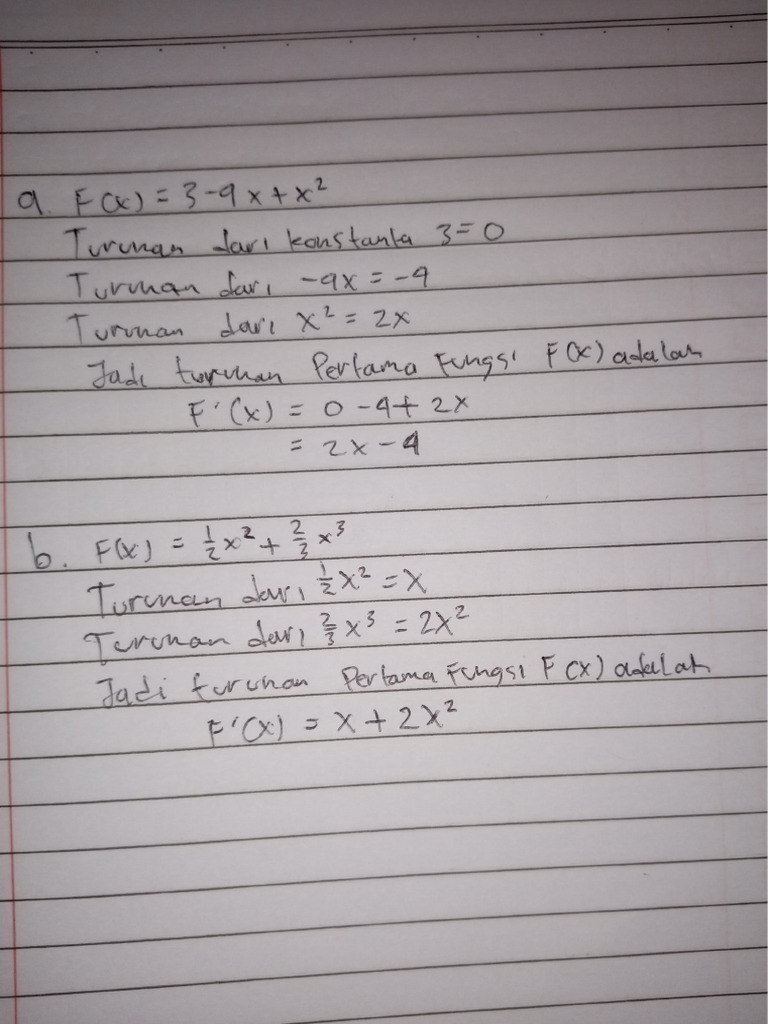 a. F(x) = 3-4x+x²
Turunan dari konstanta 3=0
Turunan dari -4x = -4
Turunan dari x² = 2x
Jadi turunan Pertama Fungsi F(x) adalah
F'(x) = 0 -4+ 2x
= 2x-4
b. F(x) = ½x² + ⅔x³
Turunan dari ½x² = x
Turunan dari ⅔x³ = 2x²
Jadi turunan Pertama Fungsi F(x) adalah
F'(x) = x + 2x²